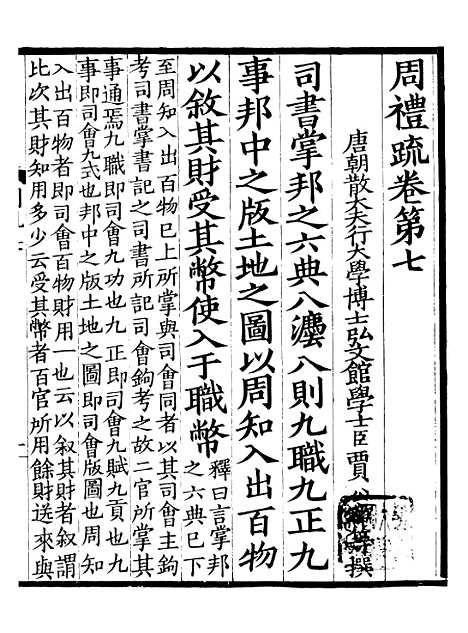 周禮疏卷第七
唐朝散大夫行大學博士弘文館學士臣賈 等撰
司書掌邦之六典八灋八則九職九正九
事邦中之版土地之圖以周知入出百物
以敘其財受其幣使入于職幣
釋曰言掌邦
之六典已下
至周知入出百物已上所掌與司會同者以其司會主鉤
考司書掌書記之司書所記司會鉤考之故二官所掌其
事通焉九職即司會九功也九正即司會九賦九貢也九
事即司會九式也邦中之版土地之圖即司會版圖也周知
入出百物者即司會百物財用一也云以叙其財者叙謂
比次其財知用多少云受其幣者百官所用餘財送來與